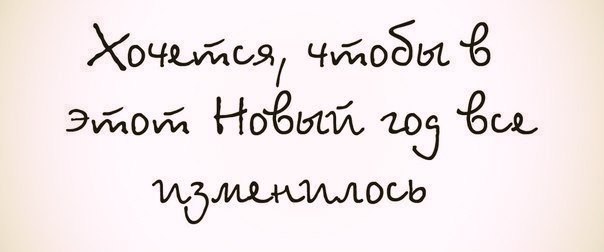 Хочется, чтобы в
этот Новый год все
изменилось